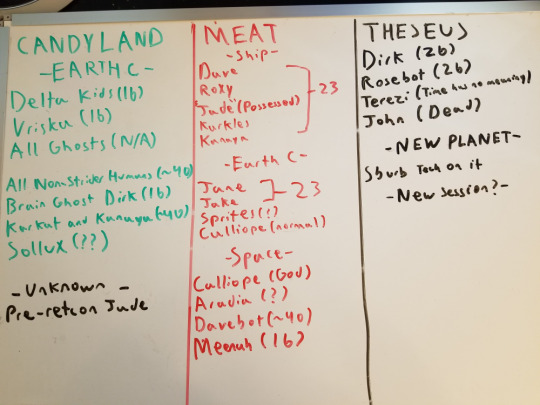 CANDYLAND
-EARTH C-
Delta Kids (16)
Vriska (16)
All Ghosts (N/A)
All Non-Strider Humans (~40)
Brain Ghost Dirk (16)
Karkat and Kanaya (~40)
Sollux (??)
-Unknown-
Pre-retcon Jade
MEAT
-Ship-
Dave
Roxy
"Jade" (Possessed)
Karkles
Kanaya
23
-Earth C-
Jane
Jake
23
Sprites (?)
Calliope (normal)
-Space-
Calliope (God)
Aradia (?)
Davebot (~40)
Meenah (16)
THESEUS
Dirk (26)
Rosebot (26)
Terezi (Time has no meaning)
John (Dead)
-NEW PLANET-
Sburb Tech on it
-New Session?-